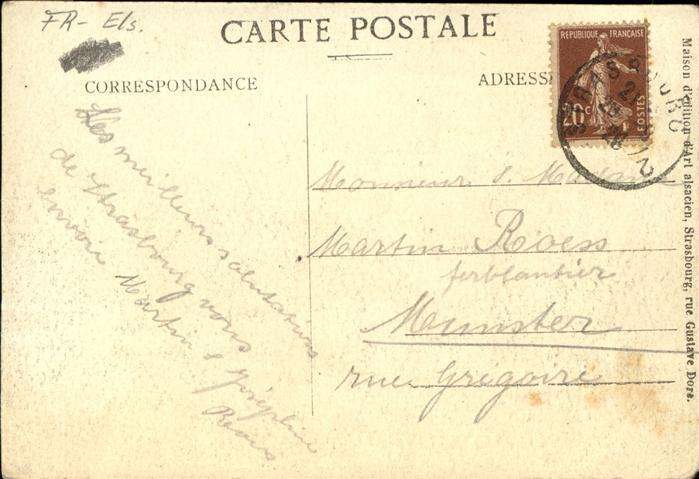 FR- Els.
CARTE POSTALE
CORRESPONDANCE
ADRESSE
REPUBLIQUE FRANÇAISE
20c
POSTES
STRASBOURG
Les meilleurs salutations
de Strasbourg vous
envoie Martin & Joséphine
Monsieur & Madame
Martin Roess
ferblantier
Munster
rue Grégoire
Maison d'édition d'Art alsacien, Strasbourg, rue Gustave Doré.